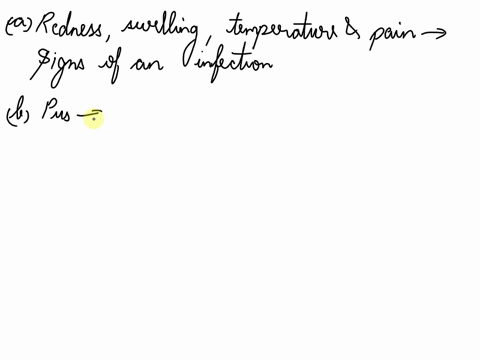 (a) Redness, swelling, temperature & pain →
Signs of an infection
(b) Pus —